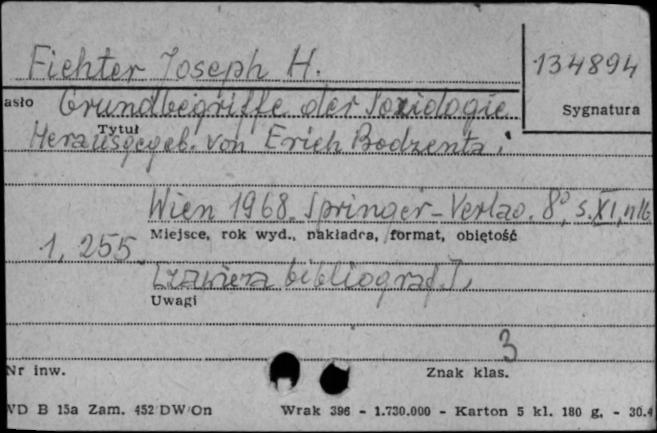 Fichter Joseph H.
134894
asło Grundbegriffe der Soziologie
Sygnatura
Tytuł
Herausgegeb. von Erich Bodzenta.
Wien 1968. Springer-Verlag. 8°, s. XI, nlb
Miejsce, rok wyd., nakładca, format, objętość
1, 255.
[zawiera bibliograf.],
Uwagi
3
Nr inw.
Znak klas.
WD B 15a Zam. 452 DW/On Wrak 396 - 1.730.000 - Karton 5 kl. 180 g. - 30.4